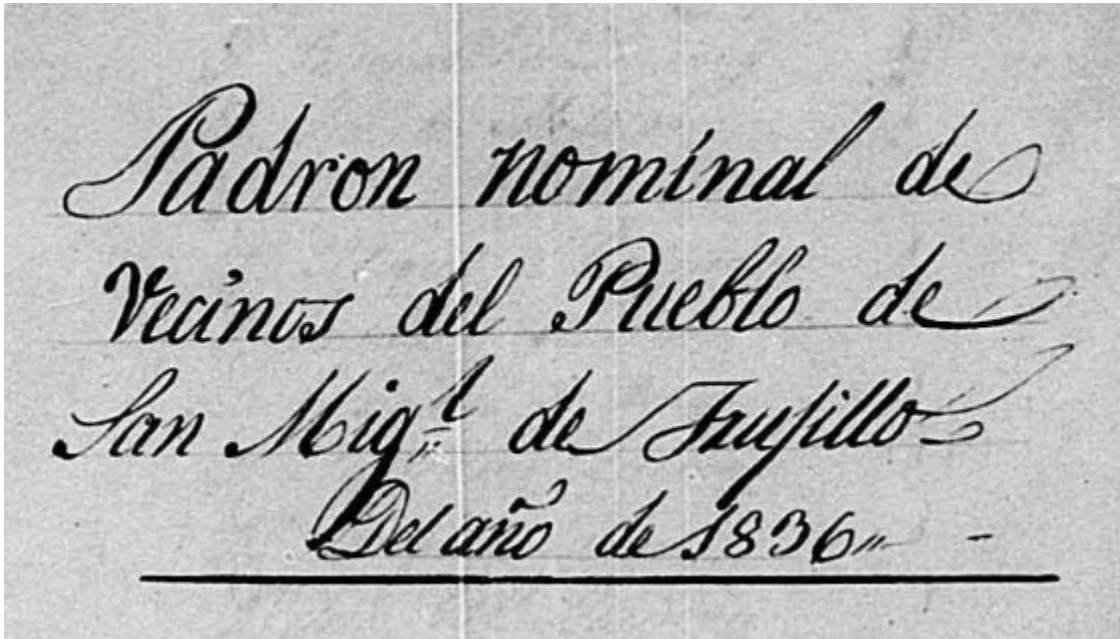 Padron nominal de
Vecinos del Pueblo de
San Mig.l de Trujillo
Del año de 1836